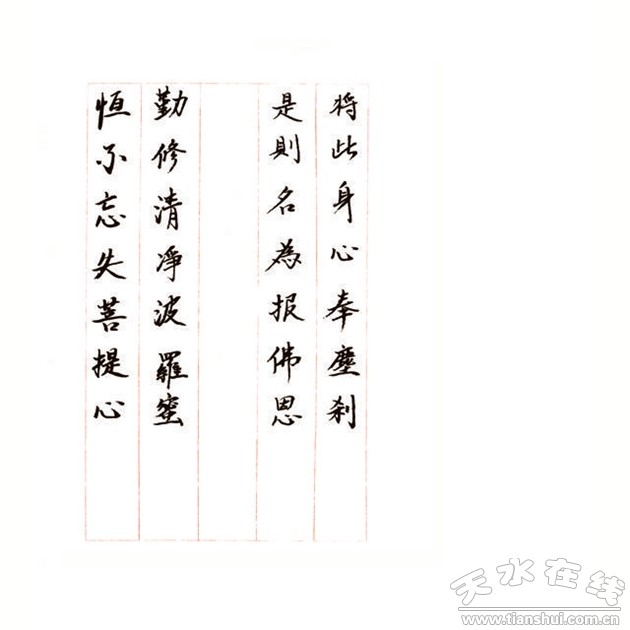 将此身心奉塵刹
是則名為报佛恩
勤修清凈波羅蜜
恒不忘失菩提心
天水在线
www.tianshui.com.cn